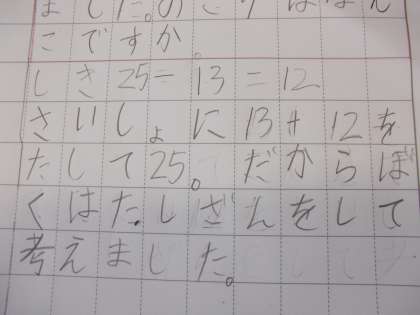 ました。のこりはなん
こですか。
しき25-13=12
さいしょに13+12を
たして25。だからぼ
くはたしざんをして
考えました。